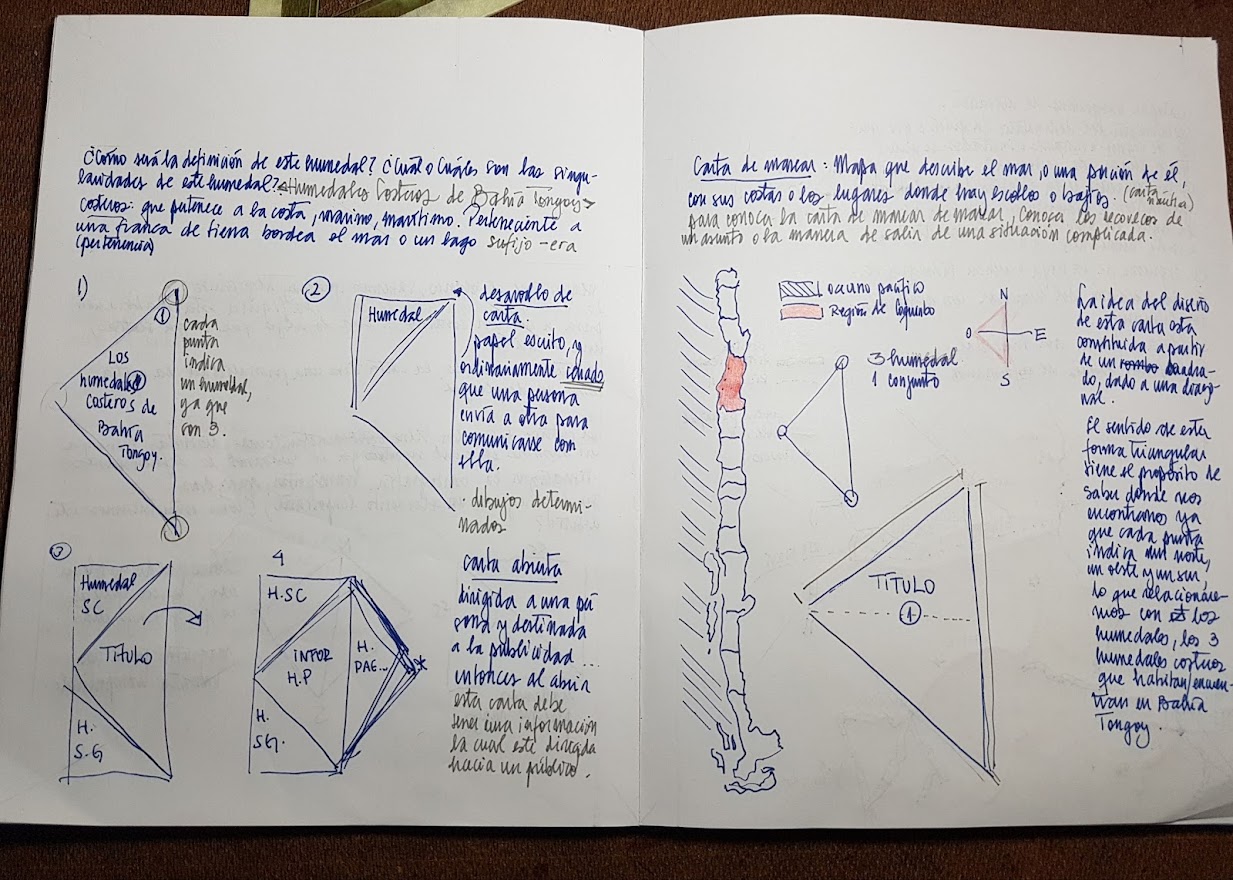 ¿Cómo será la definición de este humedal? ¿Cuál o Cuáles son las singu-
laridades de este humedal? <Humedales Costeros de Bahía Tongoy>
costeros: que pertenece a la costa, marino, marítimo. Perteneciente a
una franca de tierra bordea el mar o un lago sufijo -era
(pertenencia)
1)
1
Los
humedales
Costeros de
Bahía
Tongoy.
cada
punta
indica
un humedal,
ya que
son 3.
2
Humedal
desarollo de
carta.
papel escrito, y
ordinariamente cerrado
que una persona
envía a otra para
comunicarse con
ella.
· dibujos determi-
nados
3
Humedal
SC
TíTULO
H.
S.G
4
H.SC
iNFOR
H.P
H.
PAE...
H.
SG.
carta abierta
dirigida a una per
sona y destinada
a la publicidad ...
entonces al abrir
esta carta debe
tener una información
la cual esté dirigida
hacia un público.
Carta de marear: Mapa que describe el mar, o una porción de él,
con sus costas o los lugares donde hay escollos o bajos. (carta
naútica)
para conocer la carta de marear de marear, conocer los recovecos de
un asunto o la manera de salir de una situación complicada.
océano pacífico
Región de Coquimbo
N
O
E
S
3 humedal
1 conjunto
TíTULO
1
La idea del diseño
de esta carta esta
constituida a partir
de un rombo cuadra-
do, dado a una diago
nal.
El sentido de esta
forma triangular
tiene el propósito de
saber donde nos
encontramos ya
que cada punta
indica un norte,
un oeste y un sur,
lo que relacionare-
mos con los
humedales, los 3
humedales costeros
que habitan/encuen-
tran en Bahía
Tongoy.